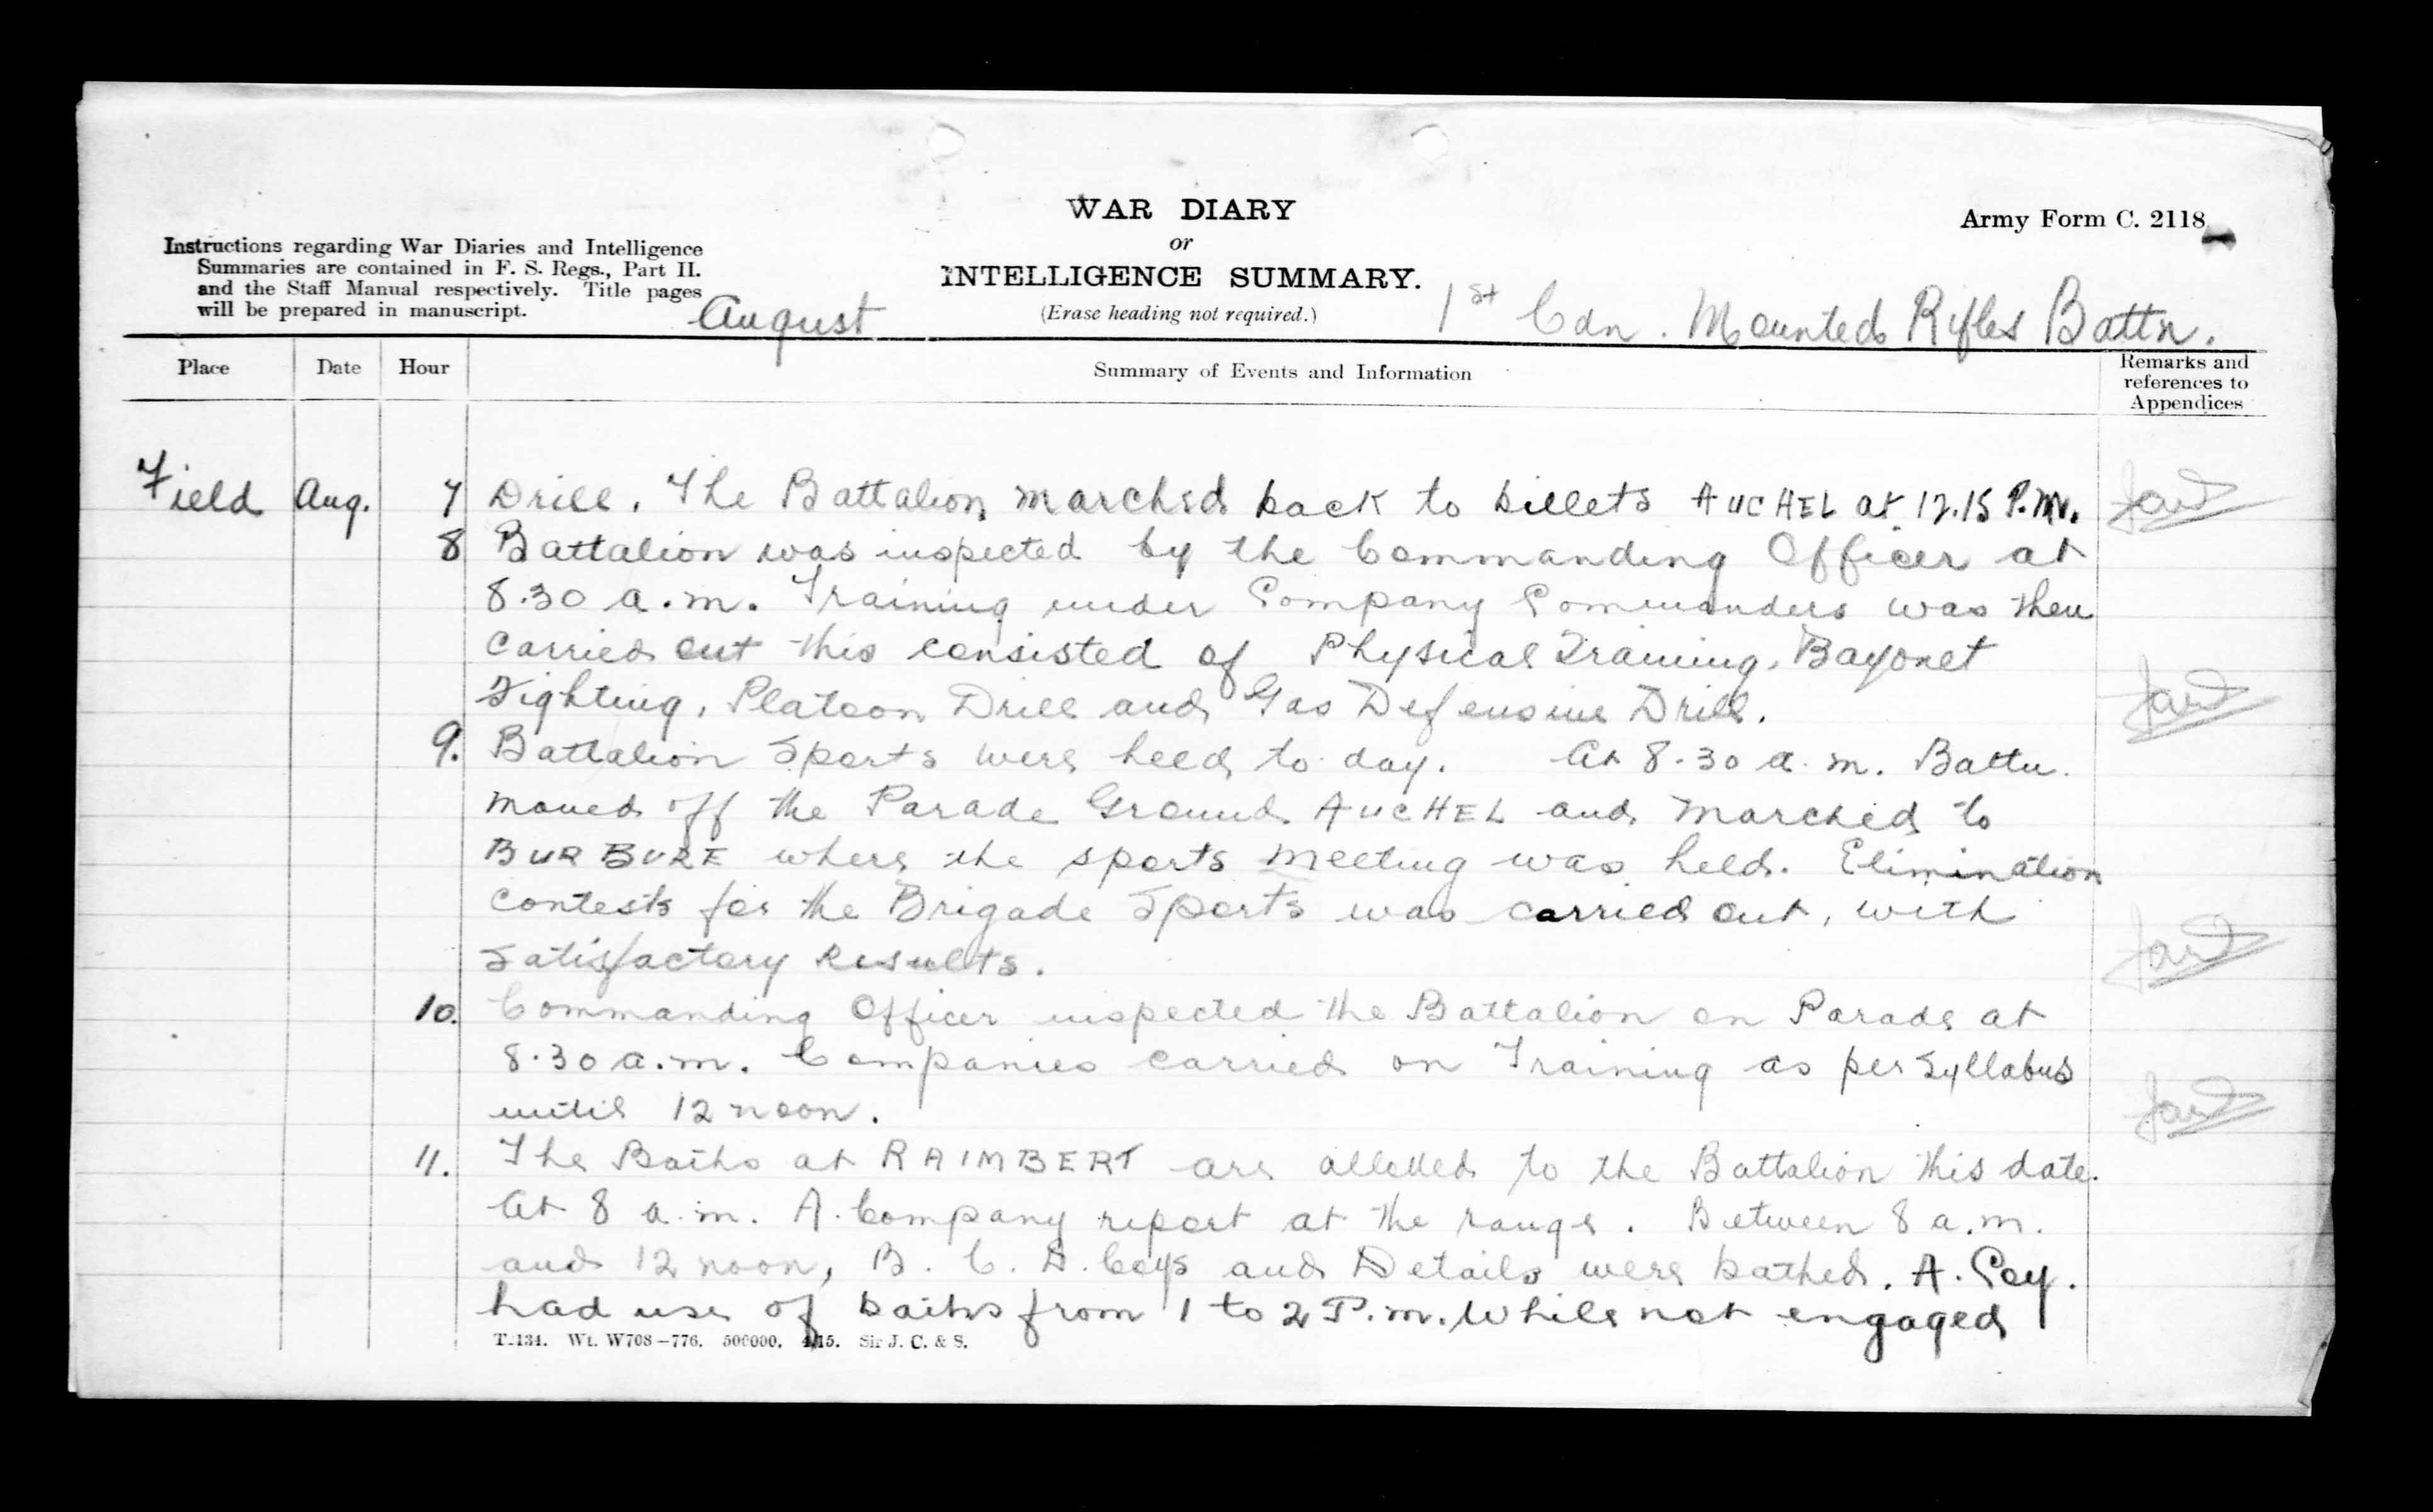 WAR DIARY
or
INTELLIGENCE SUMMARY.
(Erase heading not required.)
Army Form C. 2118.
Instructions regarding War Diaries and Intelligence
Summaries are contained in F. S. Regs., Part II.
and the Staff Manual respectively. Title pages
will be prepared in manuscript.
August
1st Cdn. Mounted Rifles Battn.
Place Date Hour Summary of Events and Information Remarks and references to Appendices
Field Aug. 7 Drill. The Battalion marched back to billets AUCHEL at 12.15 P.M.
8 Battalion was inspected by the Commanding Officer at
8.30 a.m. Training under Company Commanders was then
carried out this consisted of Physical Training, Bayonet
Fighting, Platoon Drill and Gas Defensive Drill.
9. Battalion Sports were held to day. At 8.30 a.m. Battn.
moved off the Parade Ground AUCHEL and marched to
BURBURE where the sports meeting was held. Elimination
contests for the Brigade Sports was carried out, with
satisfactory results.
10. Commanding Officer inspected the Battalion on Parade at
8.30 a.m. Companies carried on Training as per Syllabus
until 12 noon.
11. The Baths at RAIMBERT are allotted to the Battalion this date.
At 8 a.m. A. Company report at the range. Between 8 a.m.
and 12 noon, B. C. D. Coys and Details were bathed. A. Coy.
had use of baths from 1 to 2 P.m. While not engaged
T.134. Wt. W708—776. 500000. 4/15. Sir J. C. & S.